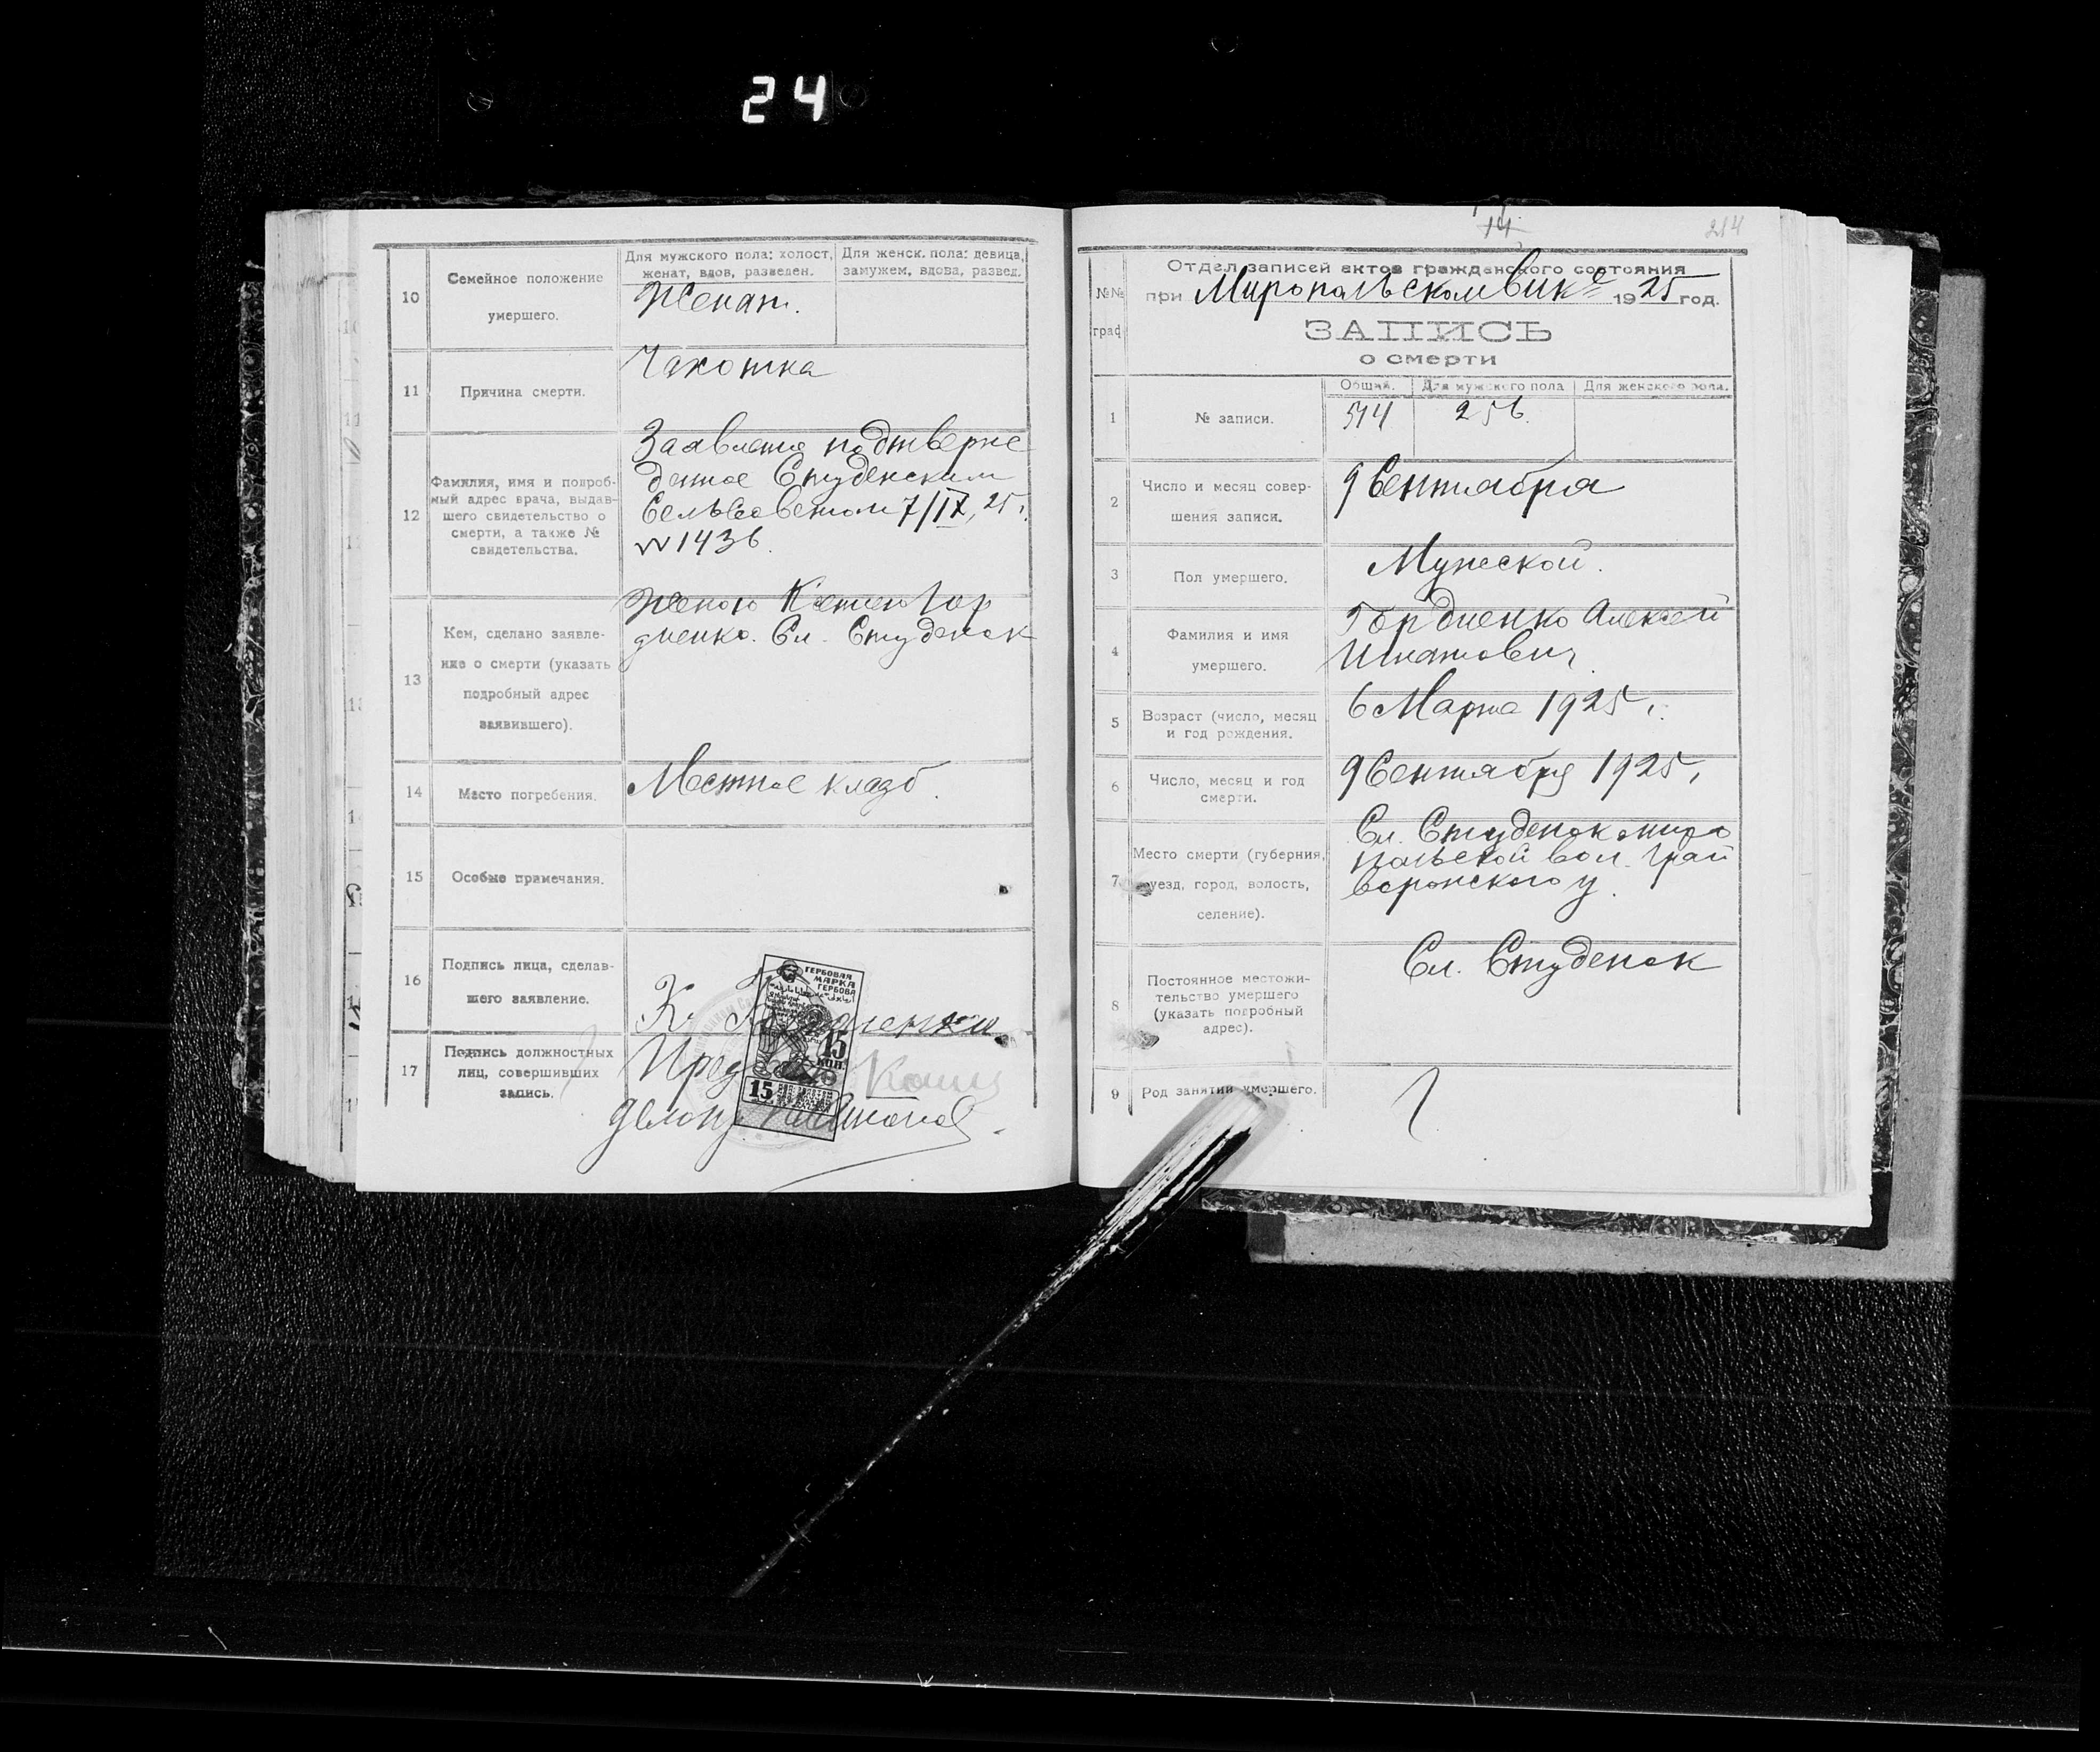 24
10
Семейное положение
умершего.
Для мужского пола: холост,
женат, вдов, разведен.
Для женск. пола: девица,
замужем, вдова, развед.
Женат.
11
Причина смерти.
Чахотка
12
Фамилия, имя и подроб-
ный адрес врача, выдав-
шего свидетельство о
смерти, а также №
свидетельства.
Заявление подтверж
денное Студенским
Сельсоветом 7/IX, 25 г.
№ 1436.
13
Кем, сделано заявле-
ние о смерти (указать
подробный адрес
заявившего).
Женою Ксенией Гор
диенко. Сл. Студенок
14
Место погребения.
Местное кладб.
15
Особые примечания.
16
Подпись лица, сделав-
шего заявление.
К.
17
Подпись должностных
лиц, совершивших
запись.
Пред
Делопр
ГЕРБОВАЯ
МАРКА
ГЕРБОВА
15
КОП.
15
14
214
№№
граф
Отдел записей актов гражданского состояния
при Миропольском вике 1925 год.
ЗАПИСЬ
о смерти
1
№ записи.
Общий.
Для мужского пола
Для женского пола.
514
256.
2
Число и месяц совер-
шения записи.
9 Сентября
3
Пол умершего.
Мужеской.
4
Фамилия и имя
умершего.
Гордиенко Алексей
Игнатович
5
Возраст (число, месяц
и год рождения.
6 Марта 1925 г.
6
Число, месяц и год
смерти.
9 Сентября 1925 г.
7
Место смерти (губерния,
уезд, город, волость,
селение).
Сл. Студенок миро
польской вол. Грай
воронского у.
8
Постоянное местожи-
тельство умершего
(указать подробный
адрес).
Сл. Студенок
9
Род занятий умершего.